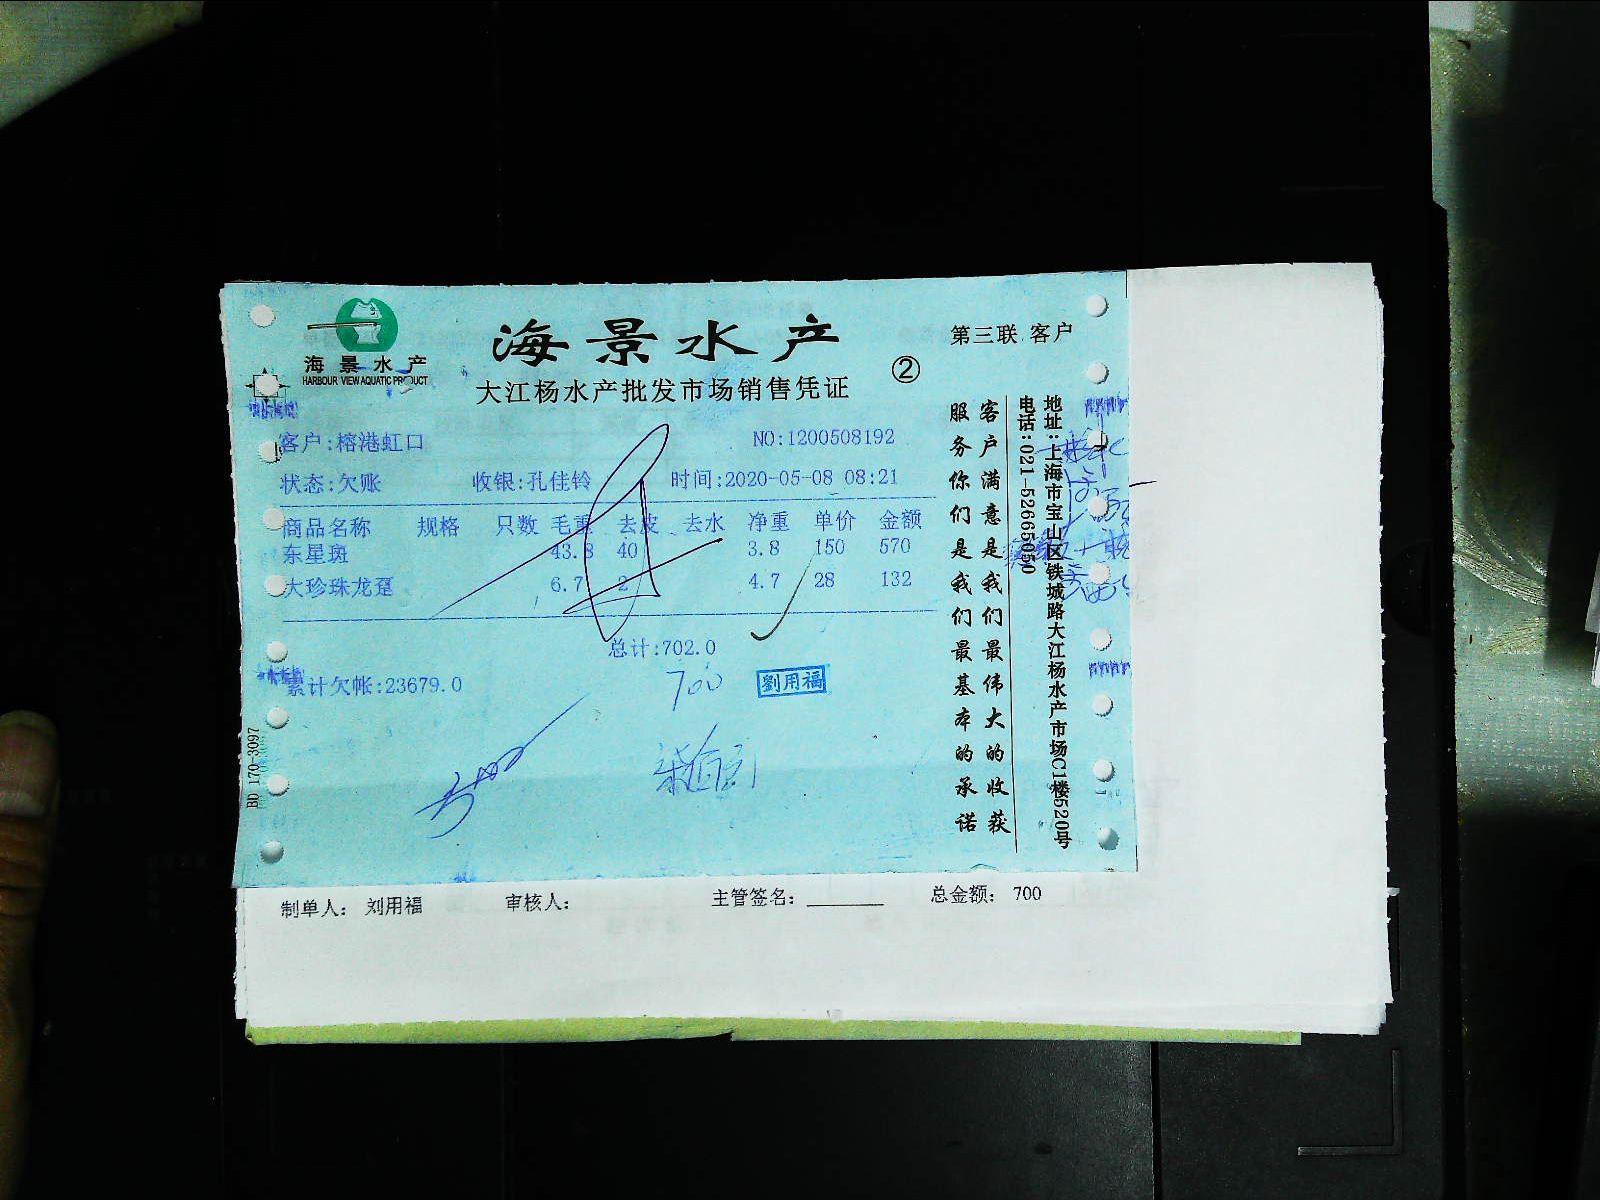 海景水产
HARBOUR VIEW AQUATIC PRODUCT
海景水产
大江杨水产批发市场销售凭证
②
第三联 客户
客户:榕港虹口
NO:1200508192
状态:欠账 收银:孔佳铃 时间:2020-05-08 08:21
商品名称 规格 只数 毛重 去皮 去水 净重 单价 金额
东星斑 43.8 40 3.8 150 570
大珍珠龙趸 6.7 2 4.7 28 132
总计:702.0
700
劉用福
累计欠帐:23679.0
BD 170-3097
客户满意是我们最伟大的收获
服务你们是我们最基本的承诺
地址:上海市宝山区铁城路大江杨水产市场C1楼520号
电话:021-52665050
制单人: 刘用福 审核人: 主管签名: 总金额: 700